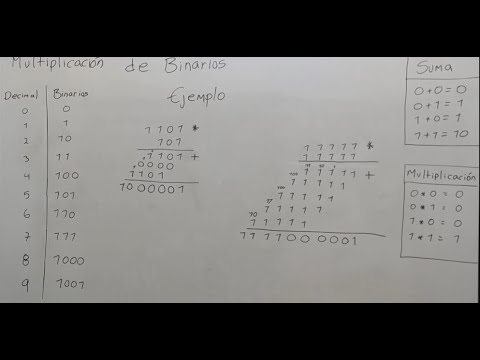 Multiplicación de Binarios
Decimal Binarios
0 0
1 1
2 10
3 11
4 100
5 101
6 110
7 111
8 1000
9 1001
Ejemplo
1101 *
101
1101 +
0000
1101
1000001
11111 *
11111
11111 +
11111
11111
11111
11111
1111000001
Suma
0+0=0
0+1=1
1+0=1
1+1=10
Multiplicación
0*0=0
0*1=0
1*0=0
1*1=1